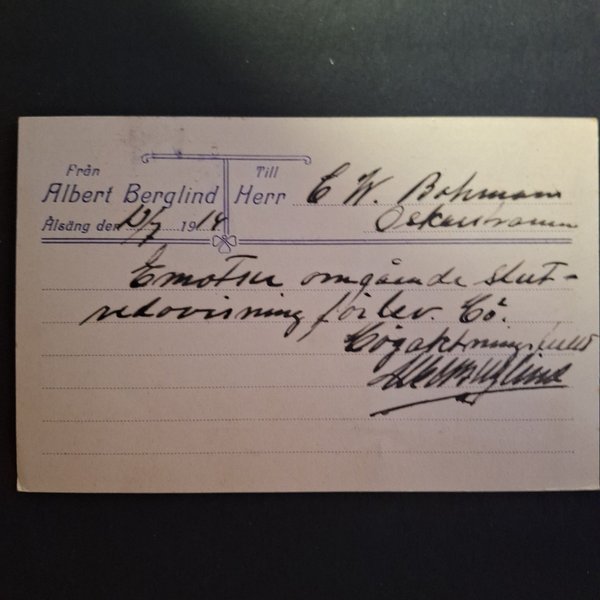 Från
Albert Berglind
Alsäng den 12/7 1914
Till
Herr C W. Bohman
Oskarström
Emotser omgående slut-
redovisning för lev. Hö.
Högaktningsfullt
Alb Berglind